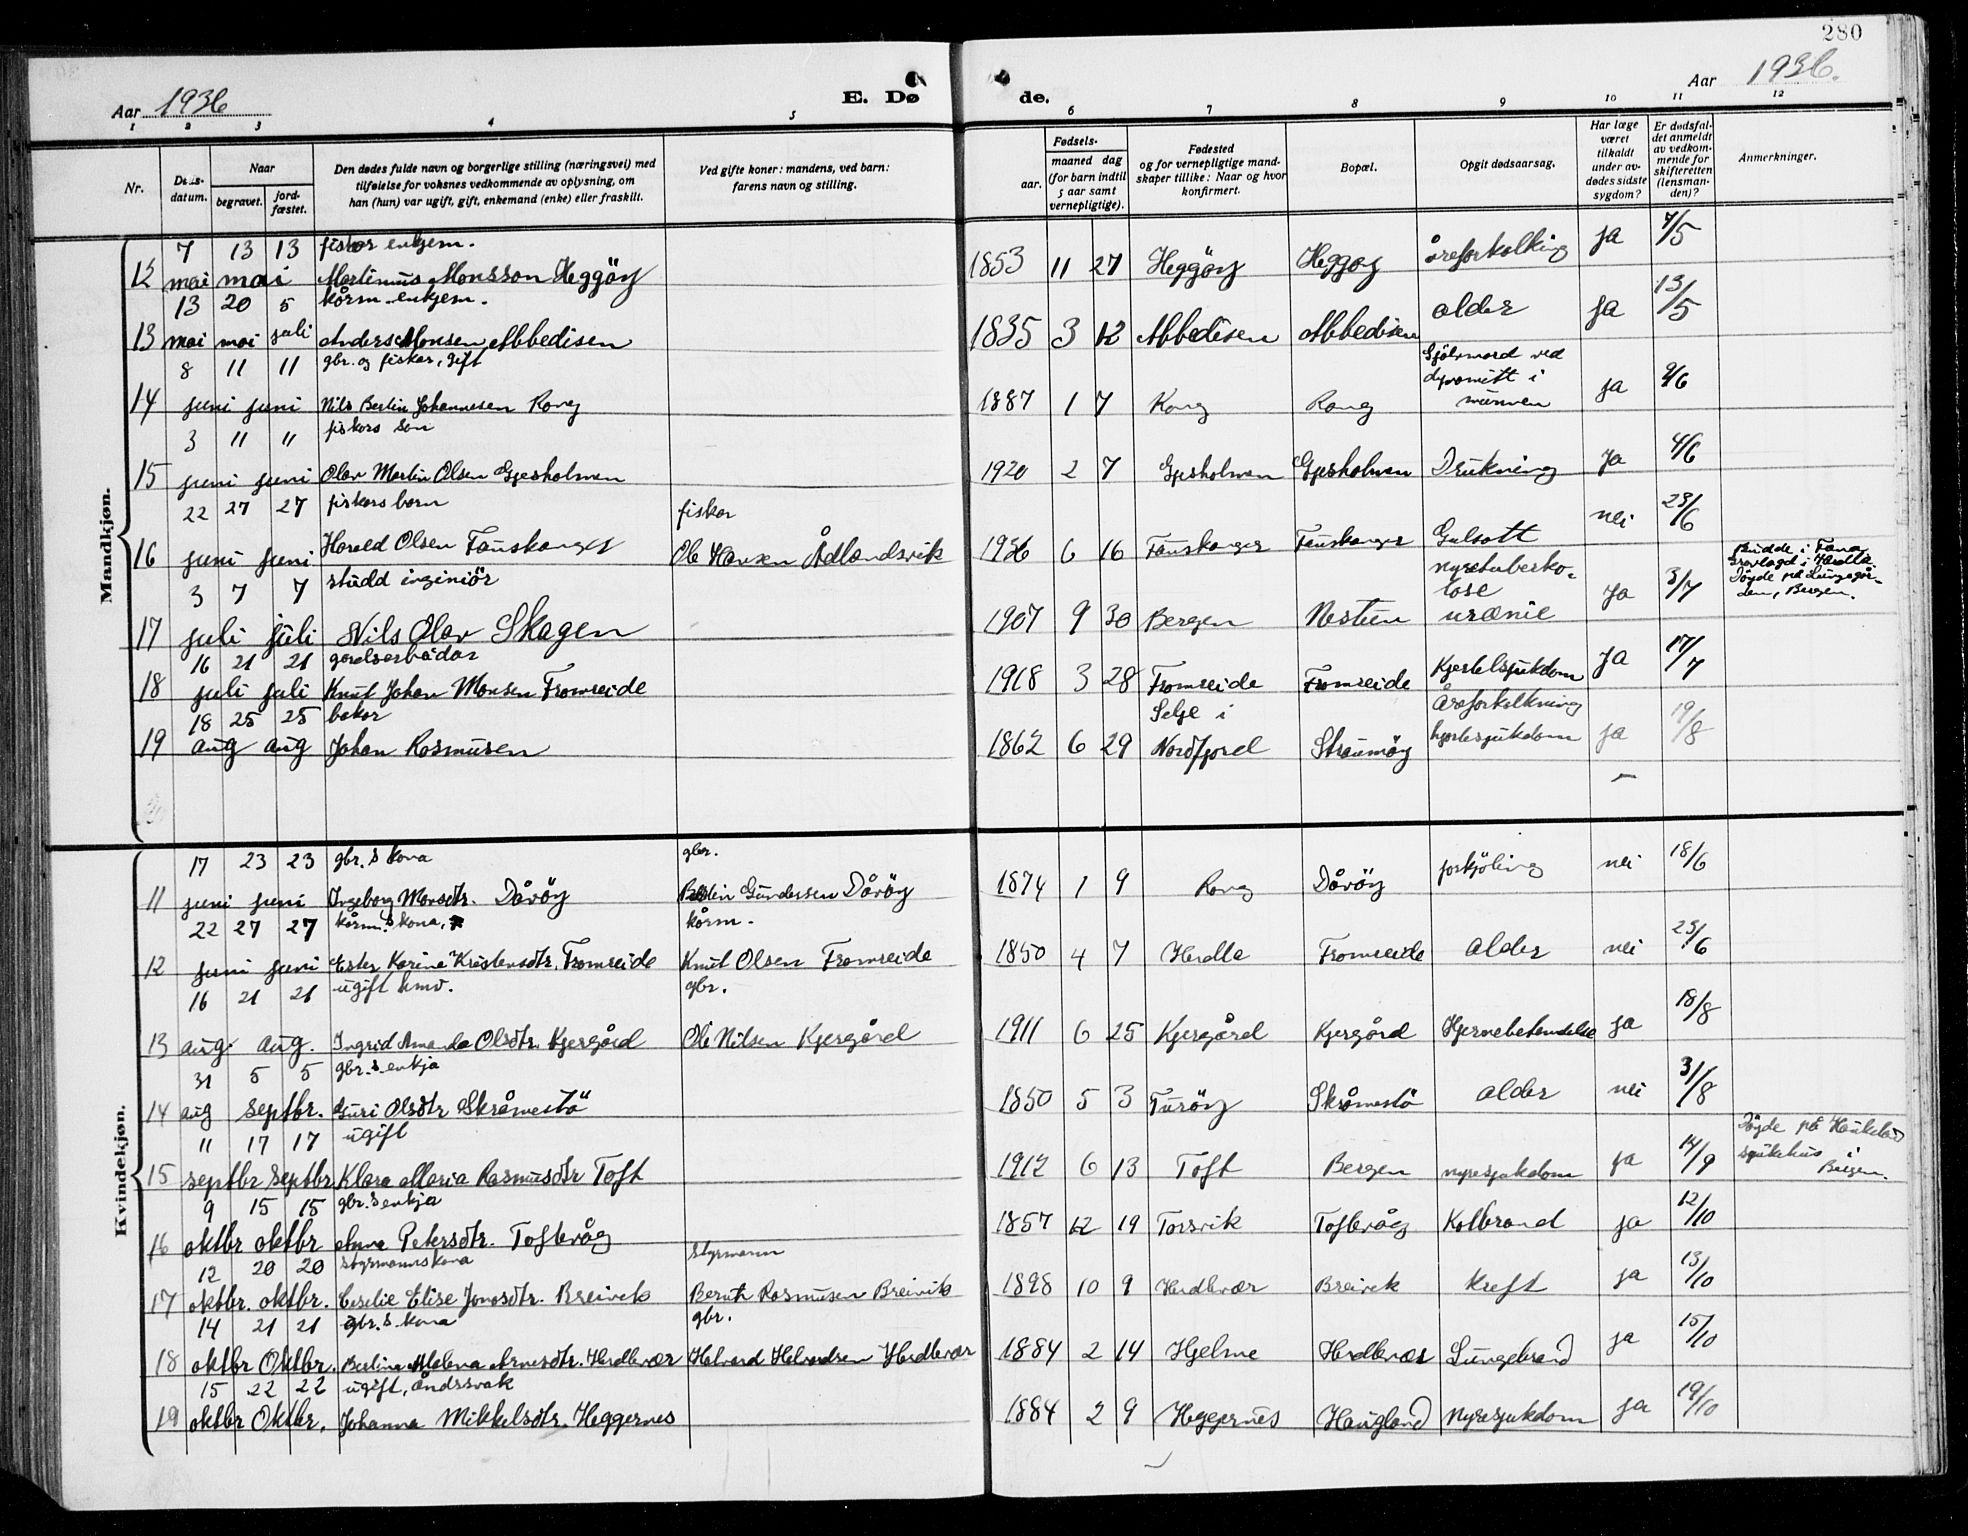 280
Aar 1936
E. Dø
de.
Aar 1936.
1 2 3 4 5 6 7 8 9 10 11 12
Nr.
Døds-datum.
Naar
begravet.
jord-fæstet.
Den dødes fulde navn og borgerlige stilling (næringsvei) med
tilføielse for voksnes vedkommende av oplysning, om
han (hun) var ugift, gift, enkemand (enke) eller fraskilt.
Ved gifte koner: mandens, ved barn:
farens navn og stilling.
Fødsels-
aar.
maaned dag
(for barn indtil
5 aar samt
vernepligtige).
Fødested
og for vernepligtige mand-
skaper tillike: Naar og hvor
konfirmert.
Bopæl.
Opgit dødsaarsag.
Har læge
været
tilkaldt
under av-
dødes sidste
sygdom?
Er dødsfal-
det anmeldt
av vedkom-
mende for
skifteretten
(lensman-
den)?
Anmerkninger.
Mandkjøn.
7 13 13 fiskar enkjem.
12 mai mai Martinus Monsson Heggöy 1853 11 27 Heggöy Heggöy åreforkalking ja 7/5
13 20 5 kårm. enkjem.
13 mai mai juli Anders Monsen Abbedisen 1835 3 12 Abbedisen Abbedisen alder ja 13/5
8 11 11 gbr. og fiskar, gift
14 juni juni Nils Bertin Johannesen Rong 1887 1 7 Rong Rong Sjölvmord ved dynamitt i munnen ja 9/6
3 11 11 fiskars son
15 juni juni Olav Martin Olsen Gjesholmen 1920 2 7 Gjesholmen Gjesholmen Drukning ja 4/6
22 27 27 fiskars barn fiskar
16 juni juni Harald Olsen Fauskanger Ole Hansen Ådlandsvik 1936 6 16 Fauskanger Fauskanger Gulsott nei 23/6
3 7 7 studd ingeniör
17 juli juli Nils Olav Skagen 1907 9 30 Bergen Nestun nyretuberko-lose urænie ja 3/7 Budde i Fana, Gravlagd i Herdla. Döyde på Lungegår-den, Bergen.
16 21 21 gardsarbeidar
18 juli juli Knut Johan Monsen Fromreide 1918 3 28 Fromreide Fromreide Kjertelsjukdom ja 17/7
18 25 25 bakar
19 aug aug Johan Rasmusen 1862 6 29 Selje i Nordfjord Straumöy Åreforkalkning hjertesjukdom ja 19/8
Kvindekjøn.
17 23 23 gbr. s kona gbr.
11 juni juni Ingeborg Monsdtr. Dåvöy Bertin Gundersen Dåvöy 1874 1 9 Rong Dåvöy forkjöling nei 18/6
22 27 27 kårm. s kona, kårm.
12 juni juni Ester Karine Kristensdtr. Fromreide Knut Olsen Fromreide 1850 4 7 Herdla Fromreide alder nei 23/6
16 21 21 ugift hmv. gbr.
13 aug. aug. Ingrid Amanda Olsdtr. Kjergård Ole Nilsen Kjergård 1911 6 25 Kjergård Kjergård Hjernebetendelse ja 18/8
31 5 5 gbr. s. enkja
14 aug septbr. Guri Olsdtr Skråmestö 1850 5 3 Turöy Skråmestö alder nei 31/8
11 17 17 ugift
15 septbr septbr Klara Maria Rasmusdtr Toft 1912 6 13 Toft Bergen nyresjukdom ja 14/9 Döyde på Haukeland sjukehus i Bergen.
9 15 15 gbr. s enkja
16 oktbr oktbr Anna Petersdtr. Toftevåg 1857 12 19 Torsvik Toftevåg Kolbrand ja 12/10
12 20 20 styrmannskona styrmann
17 oktbr. oktbr. Cecelie Elise Jonasdtr. Breivik Bernt Rasmusen Breivik 1898 10 9 Herdlevær Breivik Kreft ja 13/10
14 21 21 gbr. s. kona gbr.
18 oktbr Oktbr. Berlina Malena Arnesdtr. Herdlevær Halvard Halvardsen Herdlevær 1884 2 14 Hjelme Herdlevær Lungebrand ja 15/10
15 22 22 ugift, åndssvak
19 oktbr Oktbr. Johanna Mikkelsdtr. Heggernes 1884 2 9 Heggernes Haugland nyresjukdom ja 19/10